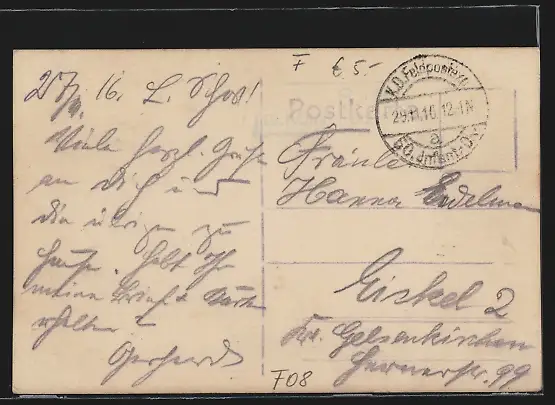 F € 5.-
27/11. 16. L. Schw!
Viele herzl. Grüße
an Dich u.
die übrigen zu
Hause. Habt Ihr
meine Brief u. Karte
erhalten?
Gerhard
Postkarte
K.D. Feldpostexp.
29.11.16. 12-1N
a
50. Infant.-Div.
Fräulein
Hanna
Eickel 2
Krs. Gelsenkirchen
Hernerstr. 99
F08